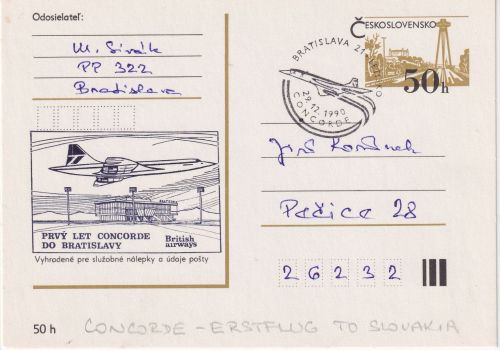 Odosielateľ:
M. Sivák
PP 322
Bratislava
BRATISLAVA 21
29.12.1990
CONCORDE
ČESKOSLOVENSKO
50h
BRATISLAVA
PRVÝ LET CONCORDE
DO BRATISLAVY
British
airways
Vyhradené pre služobné nálepky a údaje pošty
Jiří
Pačica 28
26232
50 h
CONCORDE - ERSTFLUG TO SLOVAKIA